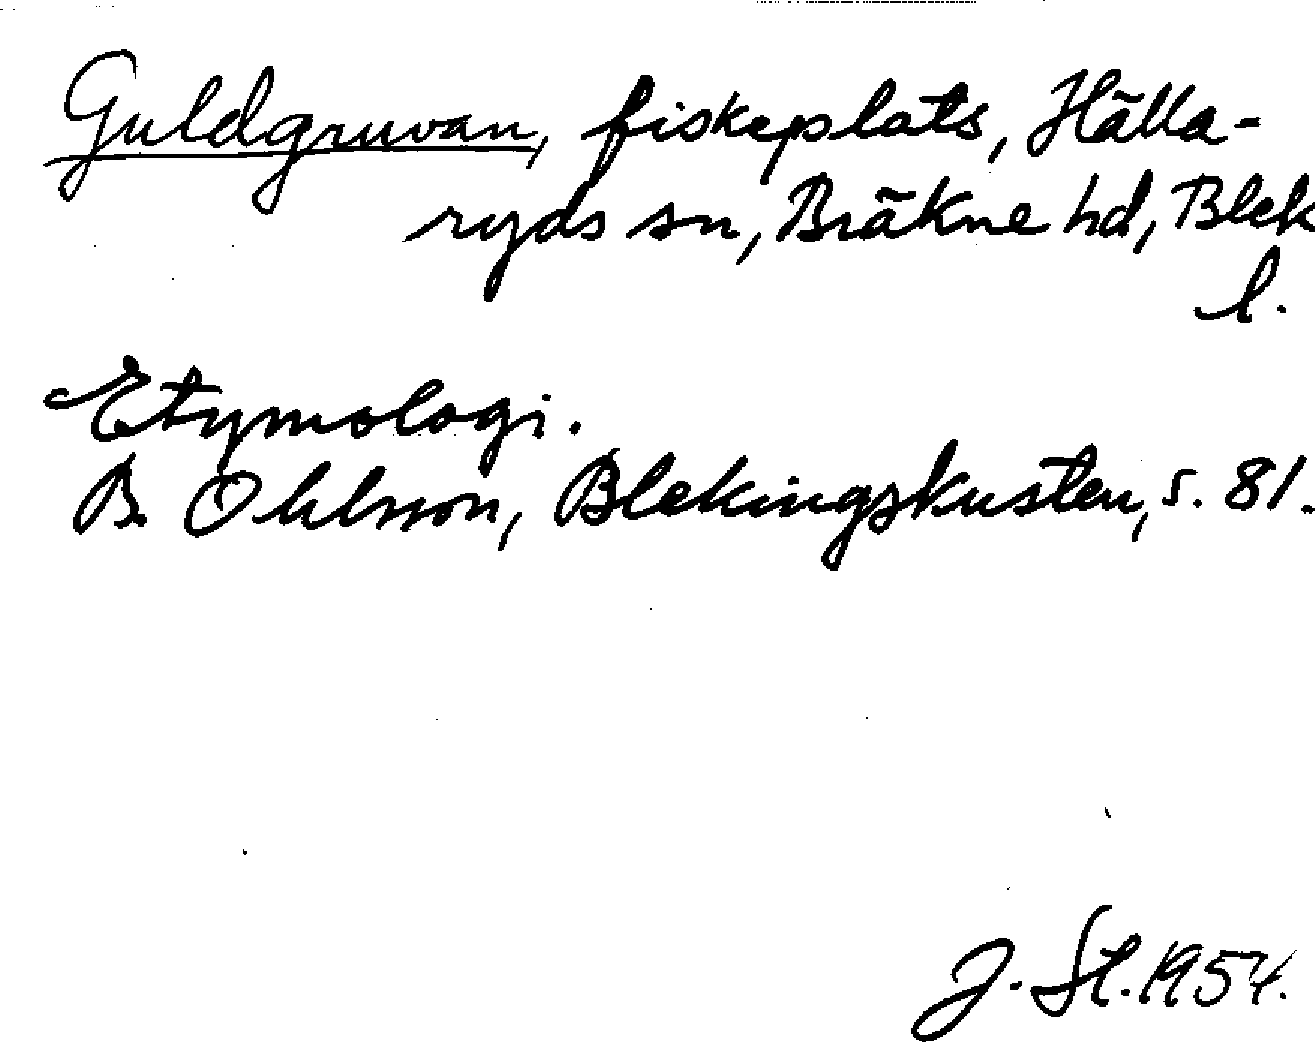 Guldgruvan, fiskeplats, Hälla-
ryds sn, Bräkne hd, Blek
l.
Etymologi.
B. Ohlsson, Blekingskusten, s. 81.
J. St. 1954.